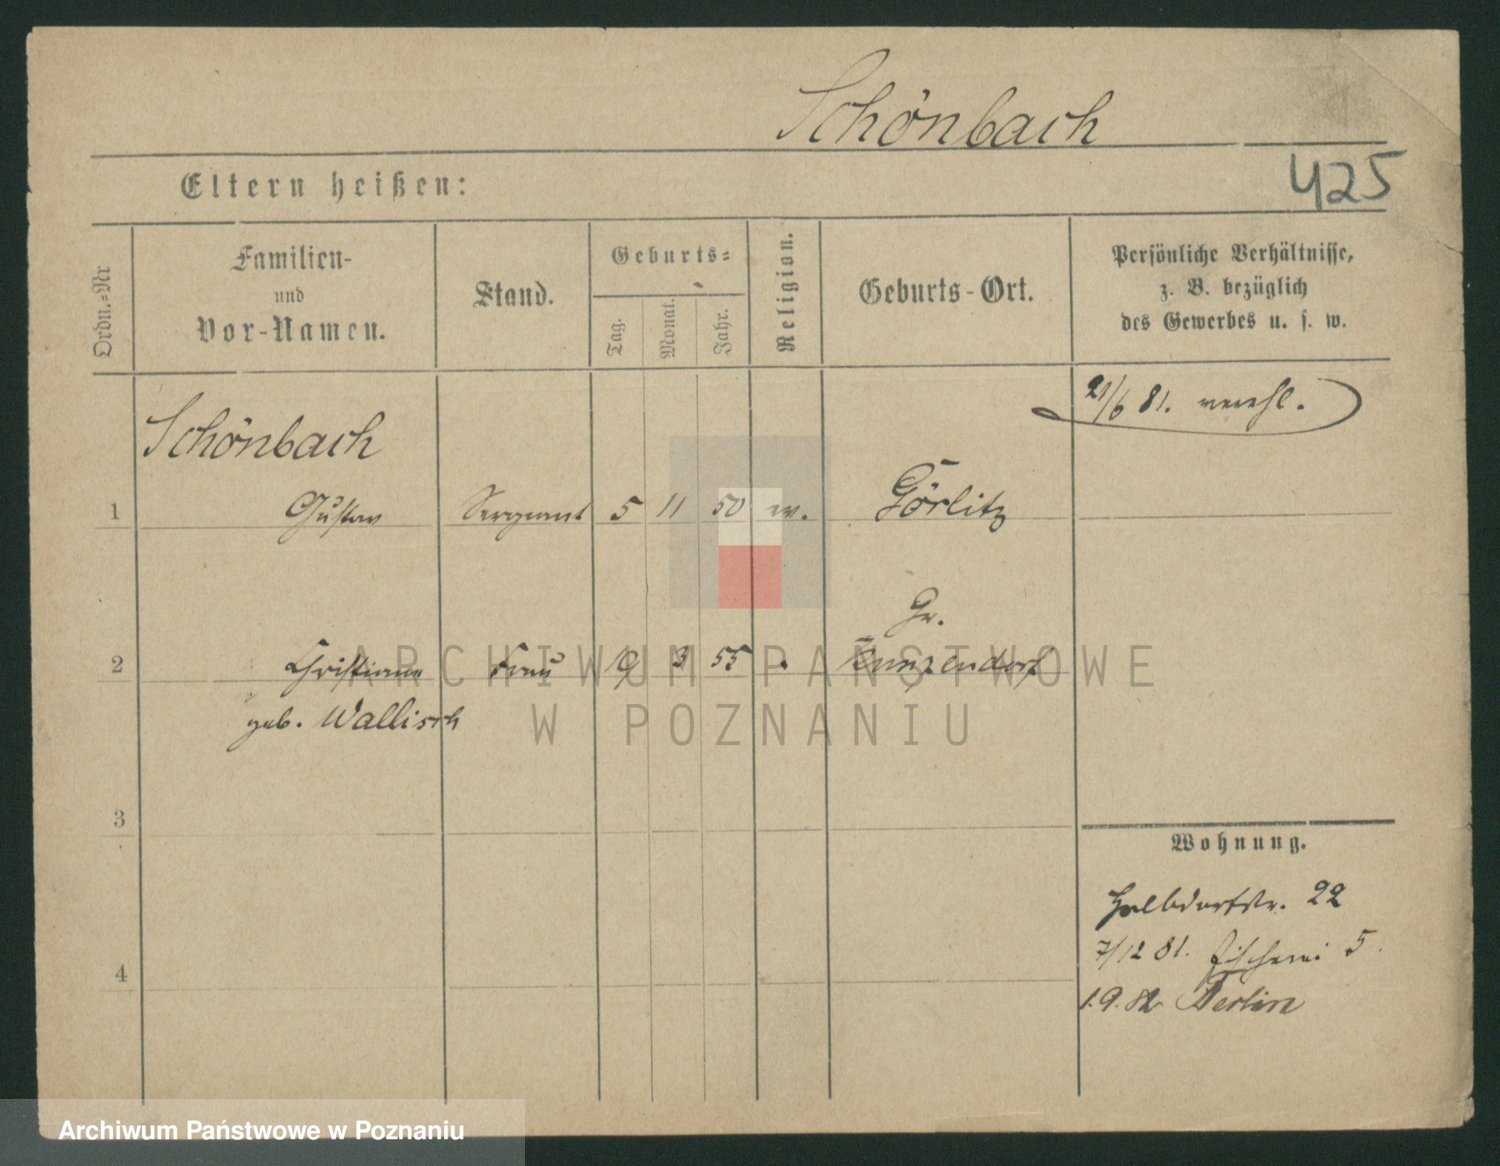 Schönbach
425
Eltern heißen:
Ordn.=Nr
Familien-
und
Vor-Namen.
Stand.
Geburts=
Tag.
Monat.
Jahr.
Religion.
Geburts-Ort.
Persönliche Verhältnisse,
z. B. bezüglich
des Gewerbes u. s. w.
21/6 81. verehl.
Schönbach
1 Gustav Sergeant 5 11 50 ev. Görlitz
Gr.
2 Christiane Frau 9 3 55 Kunzendorf
geb. Wallisch
3
4
Wohnung.
Halbdorfstr. 22
7/12 81. Fischerei 5.
1.9.82 Berlin
ARCHIWUM PAŃSTWOWE
W POZNANIU
Archiwum Państwowe w Poznaniu